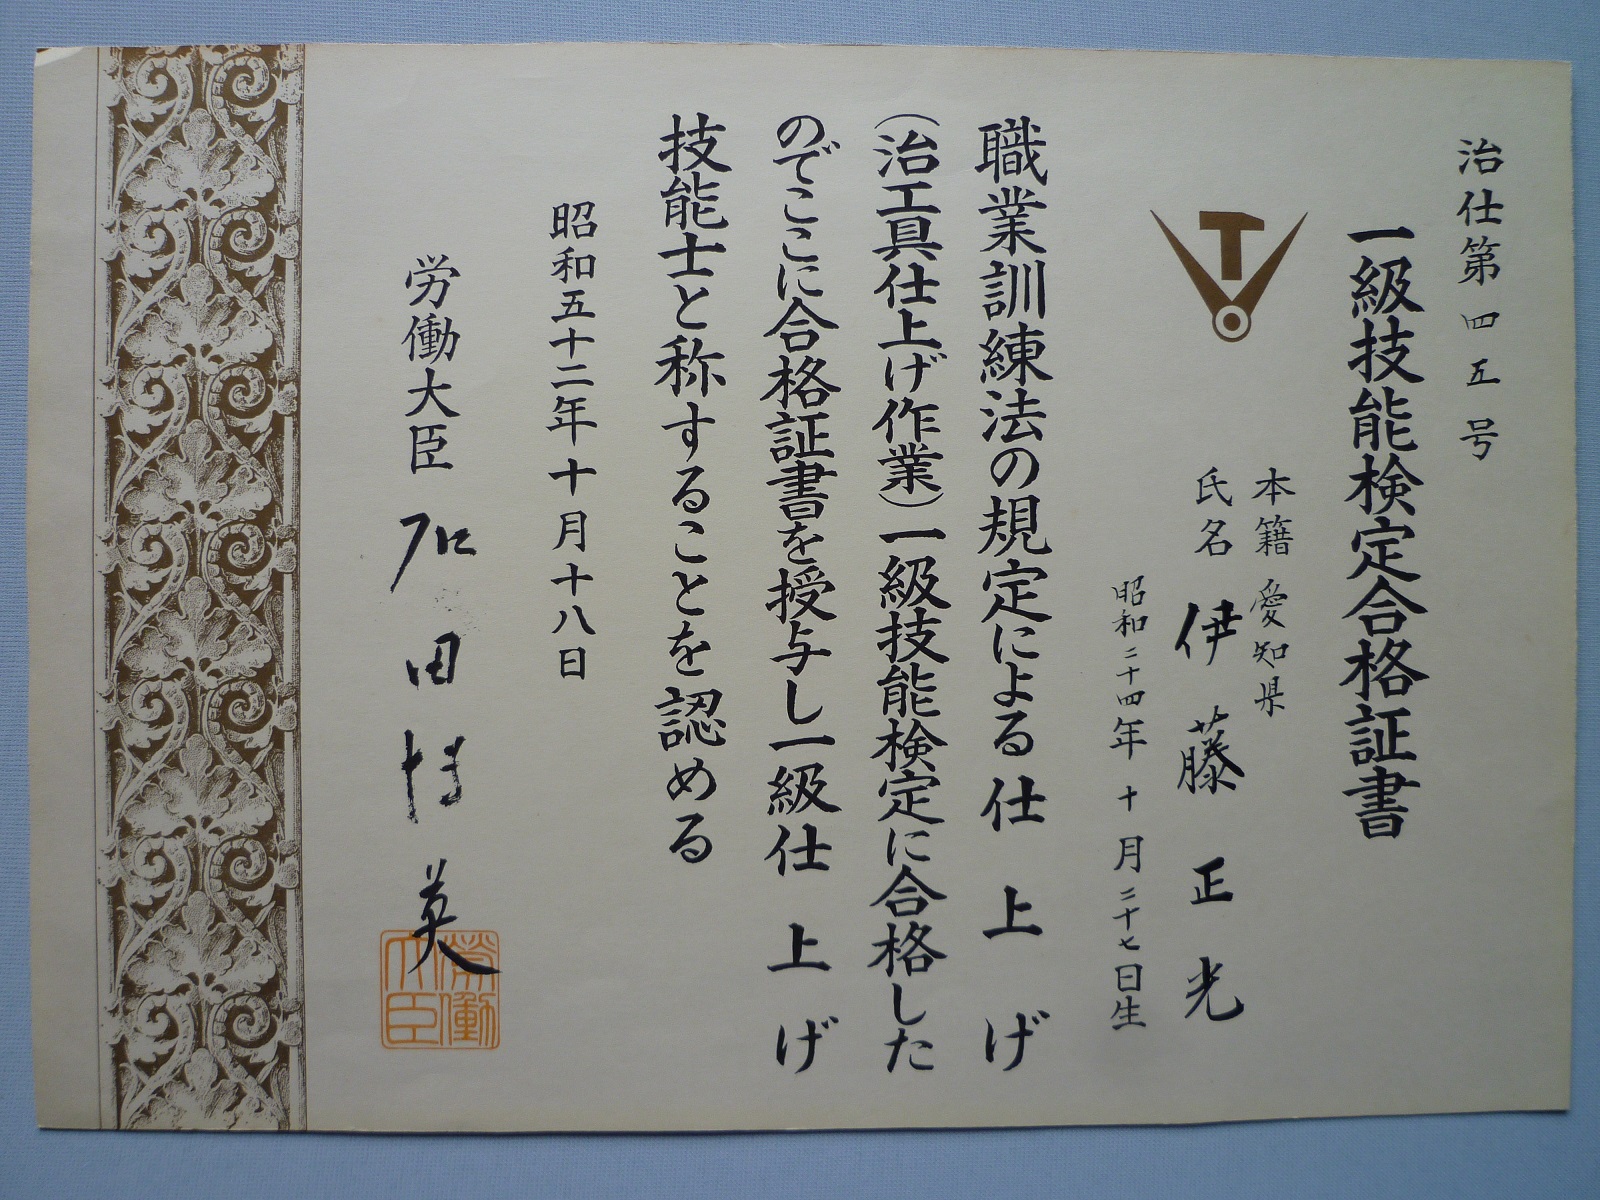 治仕第四五号
一級技能検定合格証書
本籍 愛知県
氏名 伊藤正光
昭和二十四年十月二十七日生
職業訓練法の規定による仕上げ
(治工具仕上げ作業)一級技能検定に合格した
のでここに合格証書を授与し一級仕上げ
技能士と称することを認める
昭和五十二年十月十八日
労働大臣 石田博英
労働
大臣